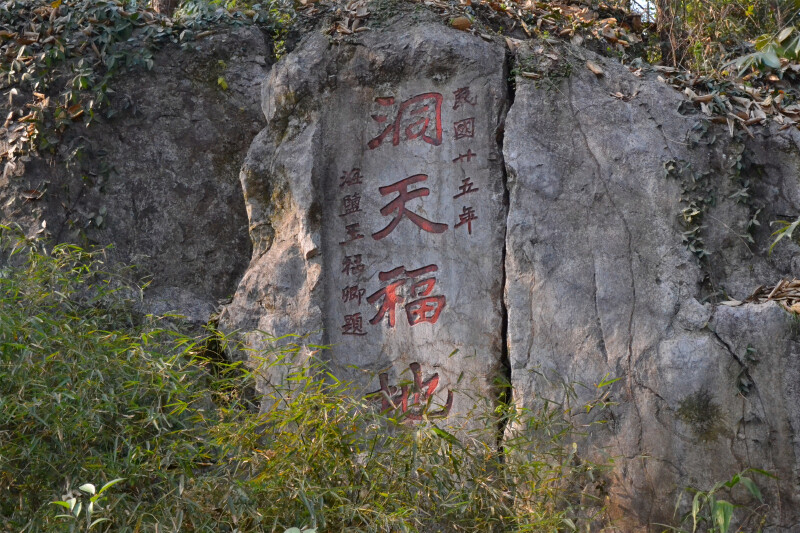 民國廿五年
洞天福地
海鹽王福卿題